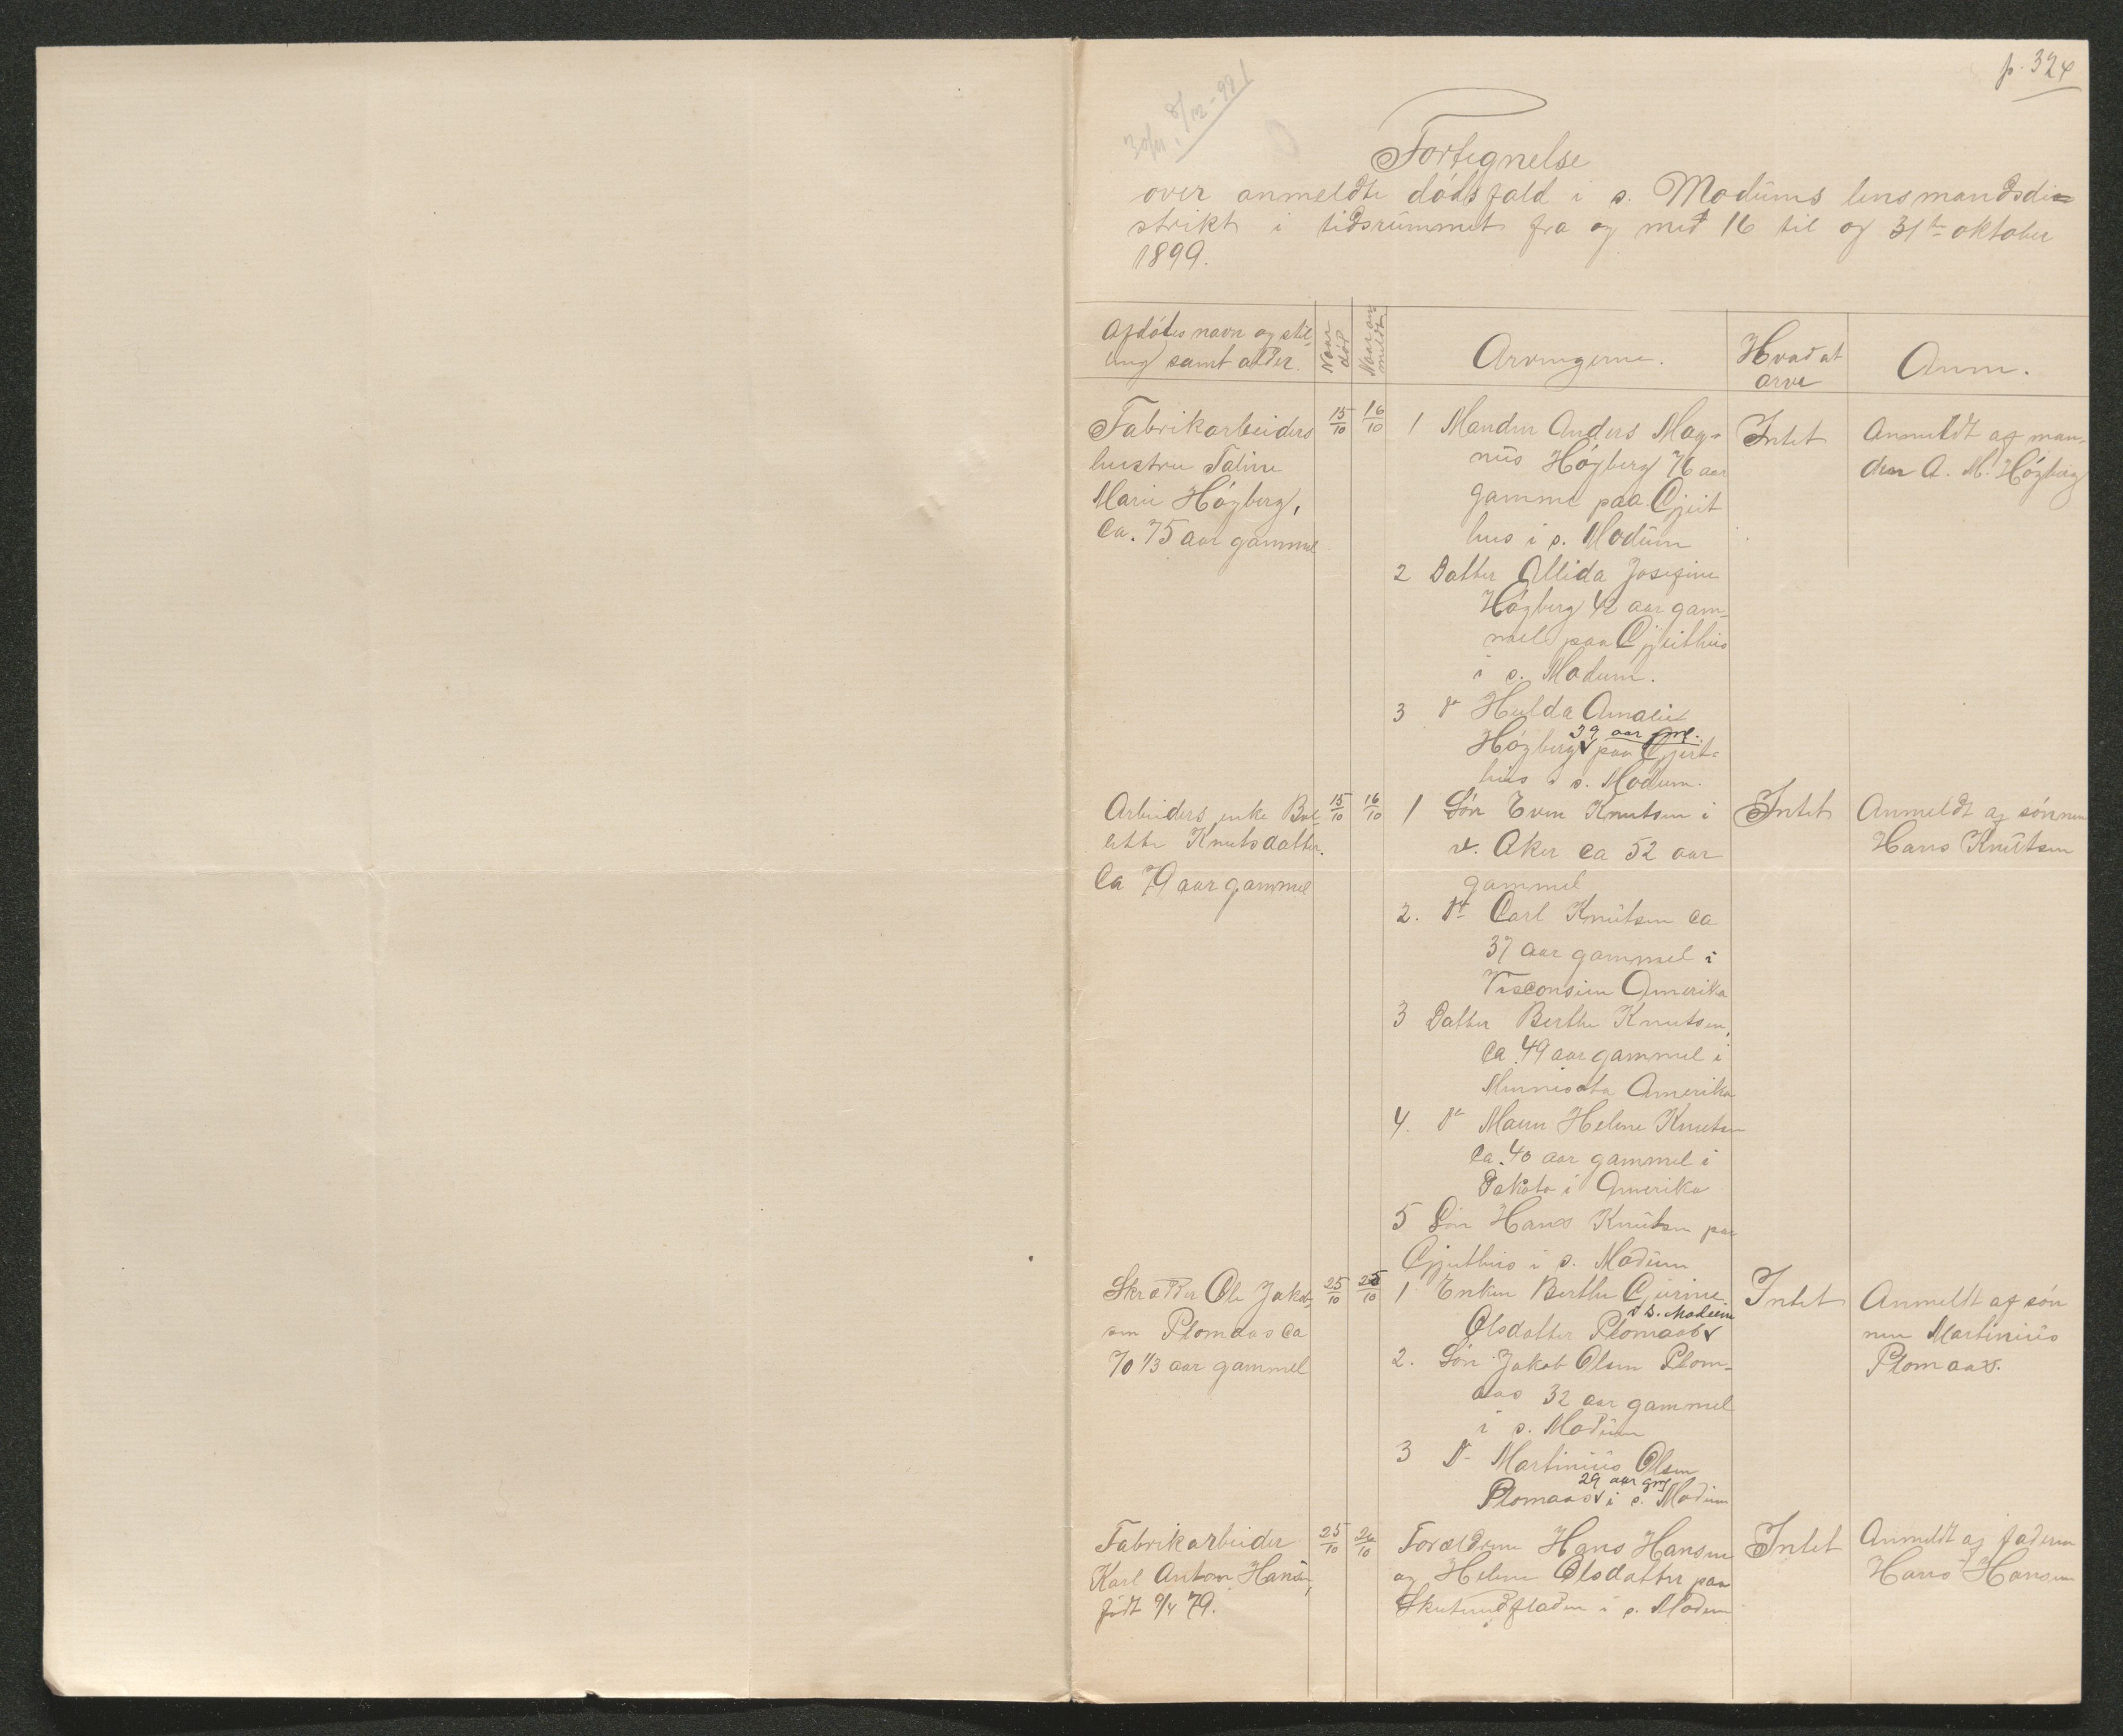 p. 324
30/11. 8/12-99
Fortegnelse
over anmeldte dódsfald i s. Modums lensmandsdi=
strikt i tidsrummet fra og med 16 til og 31te oktober
1899.
Afdódes navn og stil-
ling samt alder.
Naar
död
Naar an
meldt
Arvingerne.
Hvad at
arve
Anm.
Fabrikarbeiders
hustru Taline
Marie Högberg,
Ca. 75 aar gammel
15/10
16/10
1 Manden Anders Mag-
nus Högberg 76 aar
gammel paa Gjeit
hus i s. Modum
2 Datter Allida Josefine
Högberg 42 aar gam-
mel paa Gjeithus
i s. Modum.
3 do Hulda Amalie
39 aar gml.
Högberg paa Gjeit-
hus i s. Modum.
Intet
Anmeldt af man-
den A. M. Högberg
Arbeiders enke Bol-
lette Knutsdatter.
Ca 79 aar gammel
15/10
16/10
1 Sön Even Knutsen i
v. Aker ca 52 aar
gammel
2. do Carl Knutsen ca
37 aar gammel i
Visconsin Amerika
3 Datter Berthe Knutsen,
ca. 49 aar gammel i
Minnisota Amerika
4. do Maren Helene Knutsen
ca. 40 aar gammel i
Dakota i Amerika
5 Sön Hans Knutsen paa
Gjeithus i s. Modum
Intet
Anmeldt af sönnen
Hans Knutsen
Skrædder Ole Jakob-
sen Plomaas ca
70 1/3 aar gammel
25/10
25/10
1 Enken Berthe Gurine
i S. Modum
Olsdatter Plomaas
2. Sön Jakob Olsen Plom-
aas 32 aar gammel
i s. Modum
3 do Martinius Olsen
29 aar gml
Plomaas i s. Modum
Intet
Anmeldt af sön
nen Martinius
Plomaas.
Fabrikarbeider
Karl Anton Hansen,
födt 9/4 79.
25/10
26/10
Forældrene Hans Hansen
og Helene Olsdatter paa
i s. Modum
Intet
Anmeldt af faderen
Hans Hansen